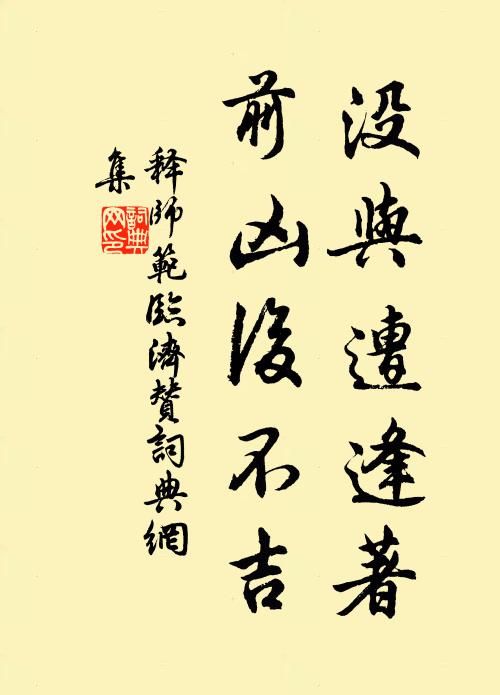 没與遭逢著
前凶後不吉
释師範臨濟贊詞典網
集
詞典
网印